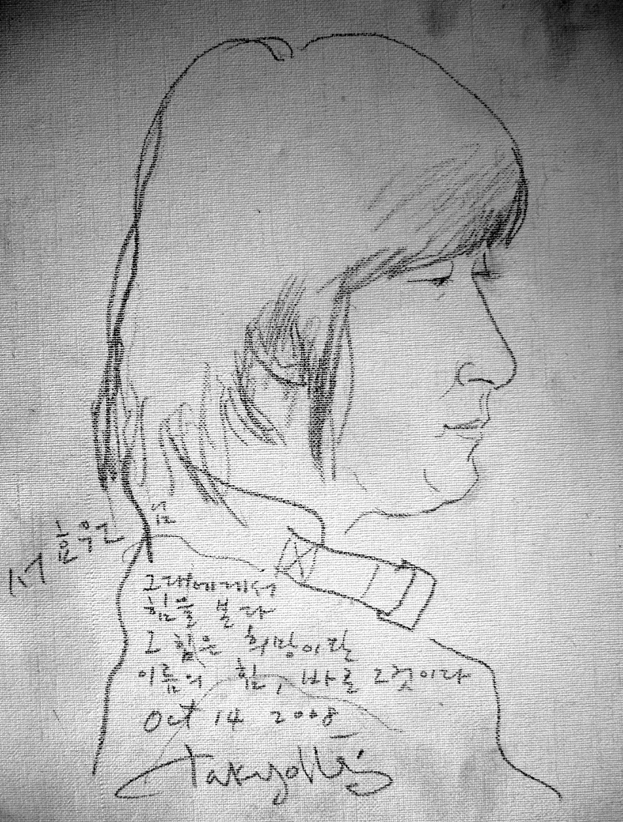 서효우 님
그대에게서
힘을 본다
그 힘은 희망이란
이름의 힘, 바로 그것이다
Oct 14 2008